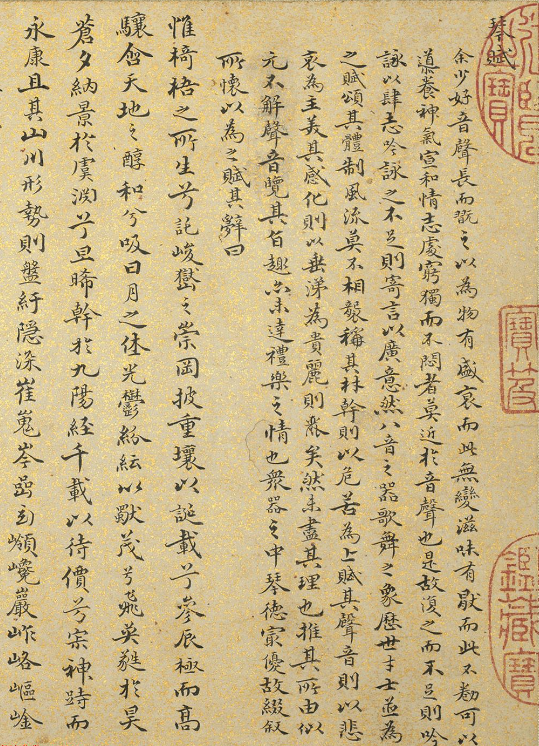 琴賦
余少好音聲長而翫之以為物有盛衰而此無變滋味有猒而此不勌可以
導養神氣宣和情志處窮獨而不悶者莫近於音聲也是故復之而不足則吟
詠以肆志吟詠之不足則寄言以廣意然八音之器歌舞之象歷世才士並為
之賦頌其體制風流莫不相襲稱其材幹則以危苦為上賦其聲音則以悲
哀為主美其感化則以垂涕為貴麗則麗矣然未盡其理也推其所由似
元不解聲音覽其旨趣亦未達禮樂之情也衆器之中琴德冣優故綴叙
所懷以為之賦其辭曰
惟椅梧之所生兮託峻嶽之崇岡披重壤以誕載兮參辰極而高
驤含天地之醇和兮吸日月之休光鬱紛紜以獨茂兮飛英蕤於昊
蒼夕納景於虞淵兮旦晞幹於九陽經千載以待價兮寂神跱而
永康且其山川形勢則盤紆隱深崔嵬岑嵒互嶺巉巖岞峈嶇崟
寶
寶笈
鑑藏寶